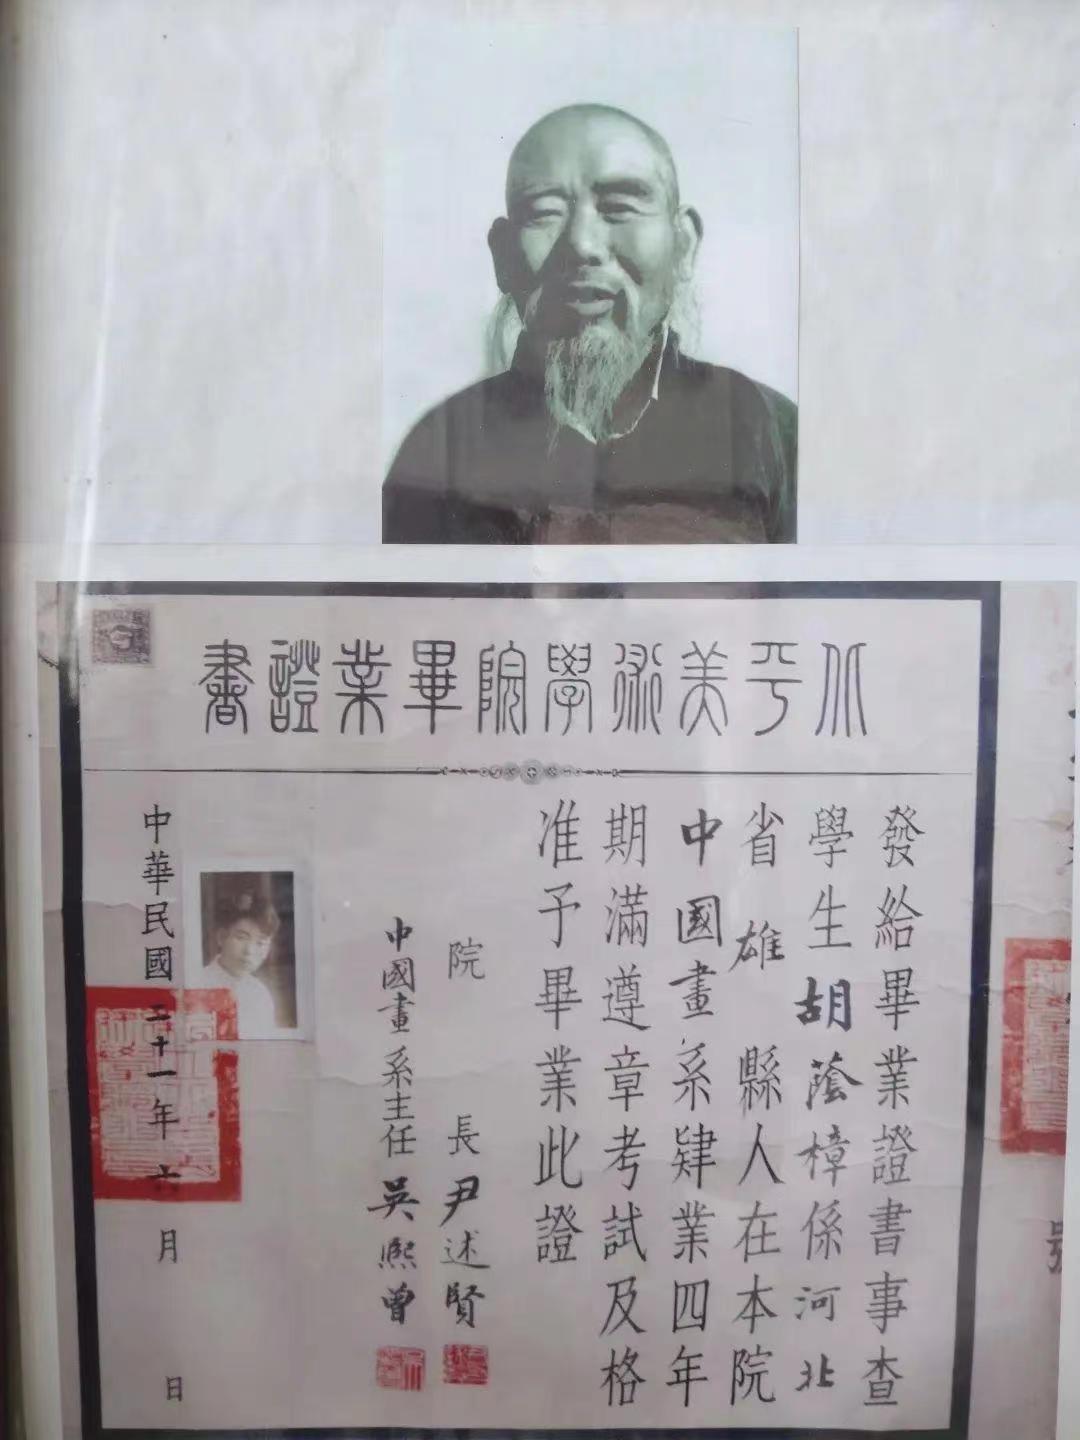 北平美術學院畢業證書
發給畢業證書事查
學生胡蔭樟係河北
省雄縣人在本院
中國畫系肄業四年
期滿遵章考試及格
准予畢業此證
院長尹述賢
中國畫系主任吳熙曾
中華民國二十一年六月日
號